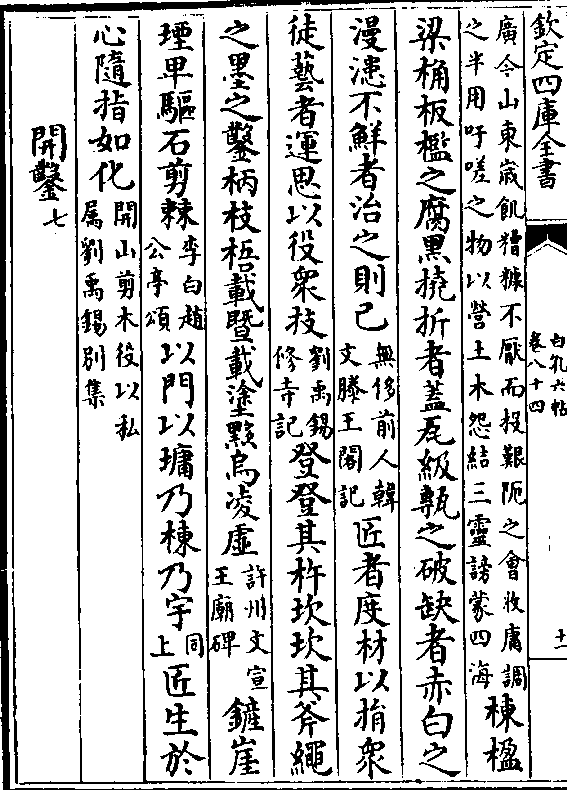 欽定四庫全書
白孔六帖
卷八十四
十一
廣令山東嵗飢糟糠不厭而投艱阨之會收庸調
之半用吁嗟之物以營土木怨結三靈謗蒙四海
棟楹
梁桷板檻之腐黒撓折者蓋瓦級甎之破缺者赤白之
漫漶不鮮者治之則已
無侈前人韓
文滕王閣記
匠者度材以指衆
徒藝者運思以役衆技
劉禹錫
修寺記
登登其杵坎坎其斧繩
之墨之鑿柄枝梧載暨載塗黝烏凌虚
許州文宣
王廟碑
鏟崖
堙卑驅石剪棘
李白趙
公亭頌
以門以墉乃棟乃宇
同
上
匠生於
心隨指如化
開山剪木役以私
属劉禹錫别集
開鑿七